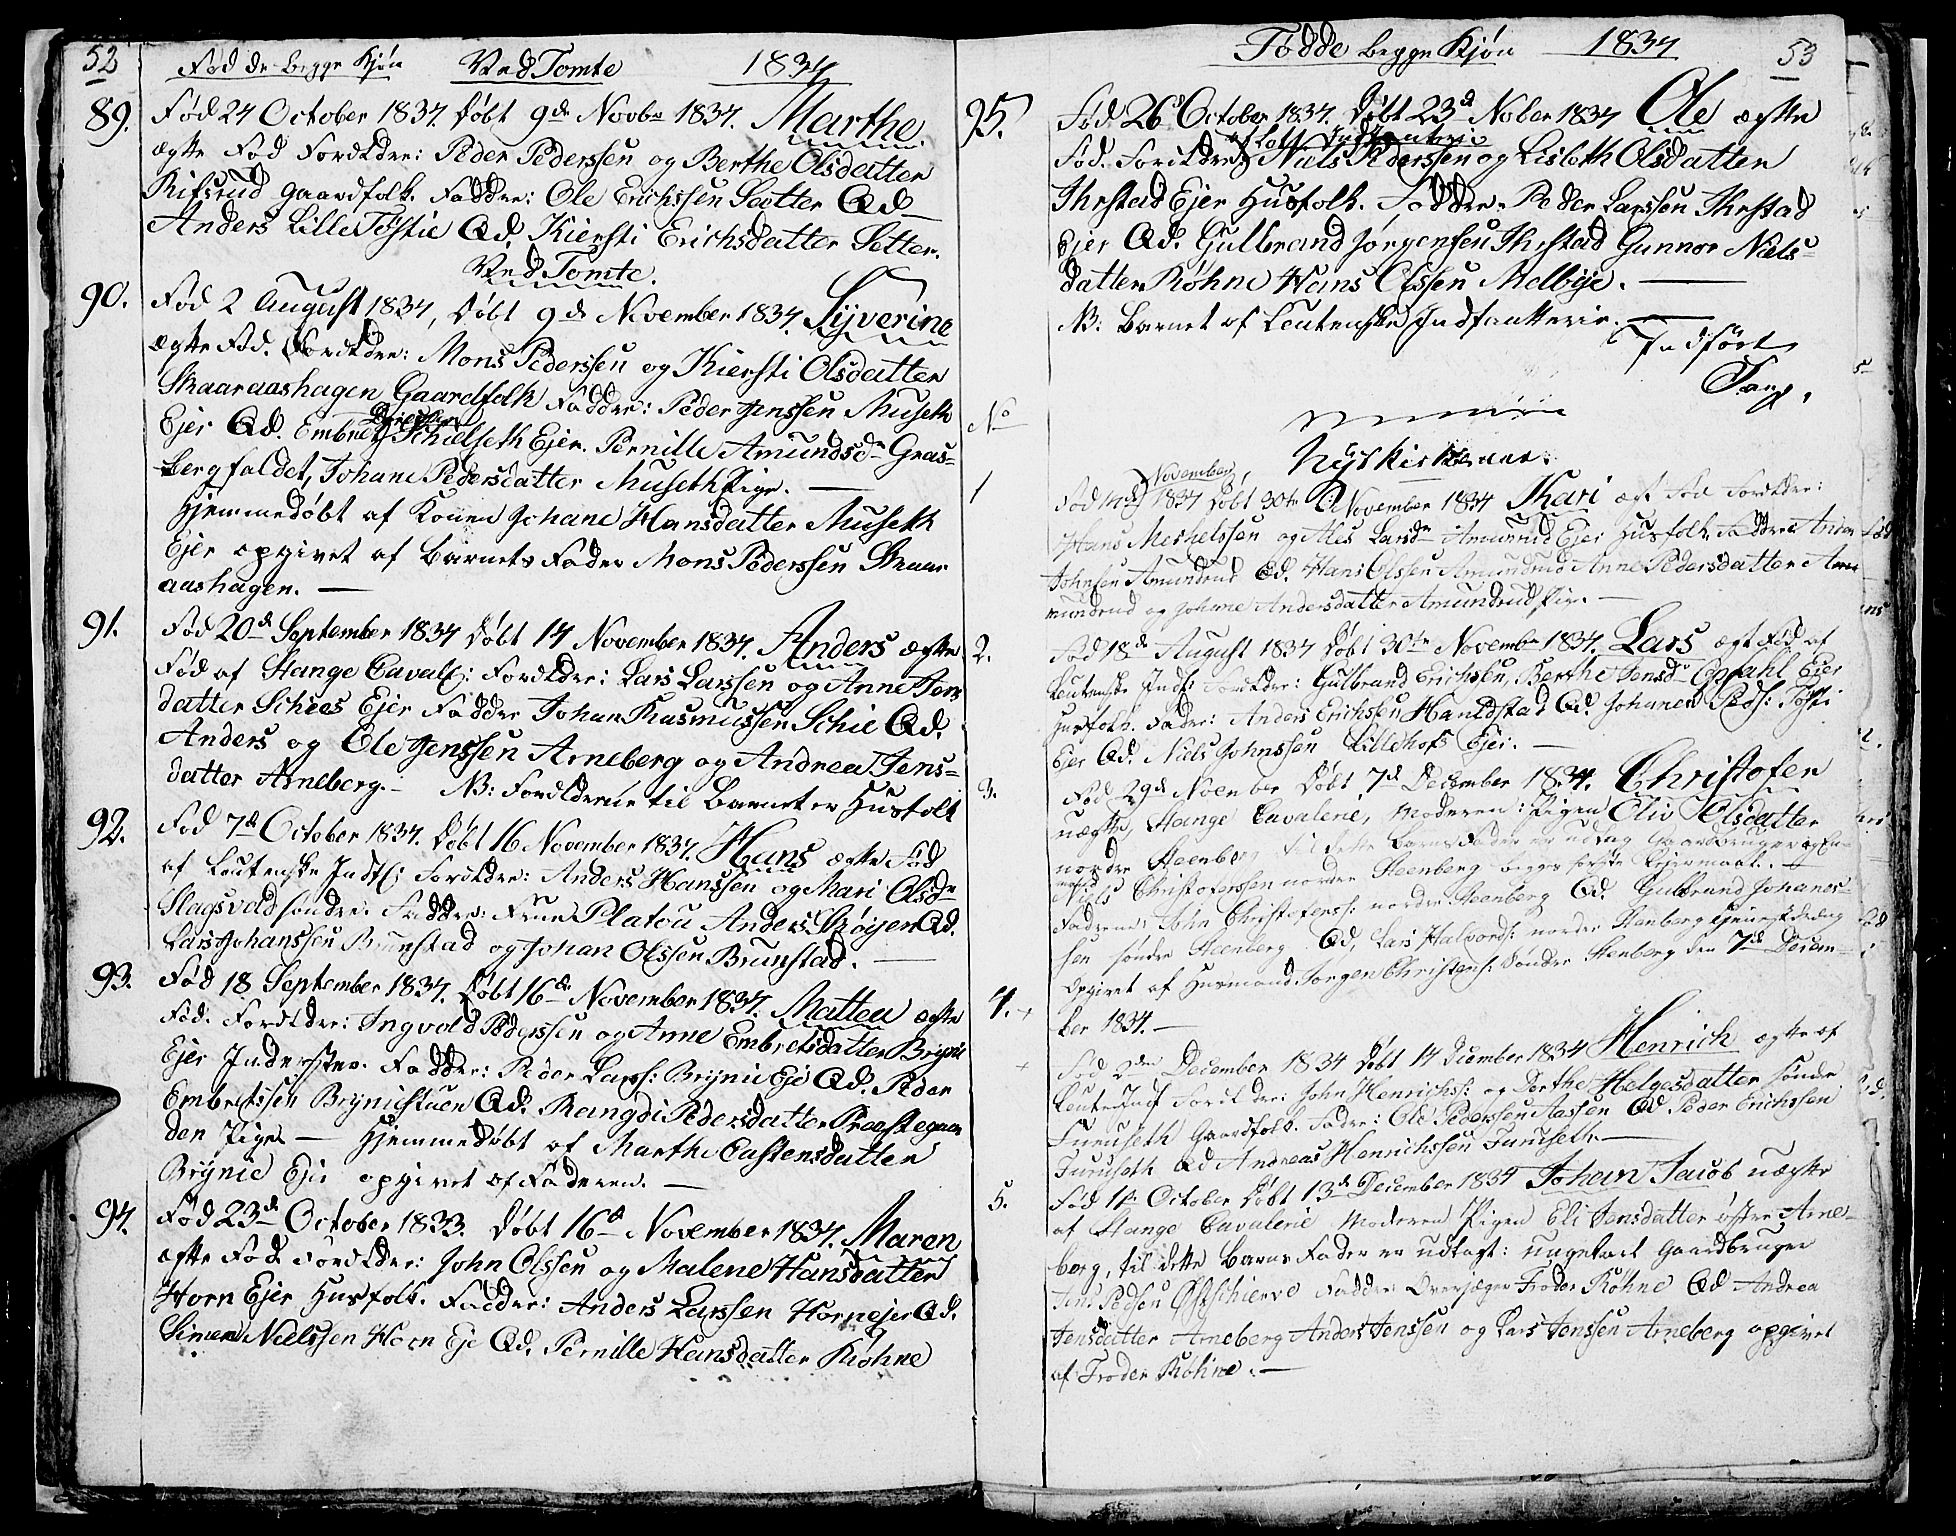 52 Fødde begge Kjøn Ved Tomte 1834
89. Fød 24 October 1834. Døbt 9de Novbr 1834. Marthe
ægte Fød Foreldre: Peder Pederssen og Berthe Olsdatter
Rifsrud Gaardfolk. Faddre: Ole Erichssen Sætter Qd
Anders Lille Tøstie Qd. Kiersti Erichsdatter Setter.
Ved Tomte.
90. Fød 2 August 1834, Døbt 9de November 1834. Syverine
ægte Fød. Foreldre: Mons Pederssen og Kiersti Olsdatter
Skaaraashagen Gaardfolk Faddre: Peder Jenssen Museth
Ejer Qd. Embret Schielseth Ejer. Pernille Amundsdr Gras=
bergfaldet, Johane Pedersdatter Museth Pige. —
Hjemmedøbt af Konen Johane Hansdatter Museth
Ejer opgivet af Barnets Fader Mons Pederssen Skaar
aashagen. —
91. Fød 20de September 1834 Døbt 14 November 1834. Anders ægte
Fød af Stange Cavall: Foreldre: Lars Larssen og Anne Jens
datter Schies Ejer Faddre Johan Rasmussen Schie Qd.
Anders og Ole Jenssen Arneberg og Andrea Jens=
datter Arneberg. — NB: Foreldrene til Barnet er Husfolk
92. Fød 7de October 1834. Døbt 16 November 1834. Hans ægte Fød
af Leutenske Indf: Foreldre: Anders Hanssen og Mari Olsdr
Slagsvold søndre. Faddre: Frue Platou Anders Røysen Qd.
Lars Johanssen Brunstad og Johan Olssen Brunstad. —
93. Fød 18 September 1834. Døbt 16de November 1834. Mattea ægte
Fød. Foreldre: Ingvold Pederssen og Anne Embretsdatter Brynie
Ejer Inderster. Faddre: Peder Larss: Brynie Eje Qd. Peder
Embretssen Bryniestuen Qd. Rangdi Pedersdatter Præstegaar
den Pige — Hjemmedøbt af Marthe Castensdatter
Brynie Eje opgivet af Faderen. —
94. Fød 23de October 1833. Døbt 16de November 1834. Maren
ægte Fød Foreldre: John Olssen og Malene Hansdatter
Horn Ejer Husfolk. Faddre: Anders Larssen Hornejer Qd.
Simen Nielssen Horn Eje Qd. Pernille Hansdatter Kiøhne
Fødde begge Kjøn 1834 53
95. Fød 26 October 1834. Døbt 23de Nober 1834 Ole ægte
Fød. Foreldre Niels Pederssen og Lisbeth Olsdatter
Ihrstad Ejer Husfolk. Faddre. Peder Larssen Ihrstad
Ejer Qd. Gulbrand Jørgensen Ihrstad Gunnor Niels=
datter Kiøhne Hans Olssen Melbye. —
NB: Barnet af Leutenske Indfantterie. —
Indført
Tang.
No
Nyskirken
November
1 Fød 1834 Døbt 30te November 1834 Kari ægt Fød Foreldre:
Hans Michelssen og Ales Larsdr Amunrud Ejer Husfolk Faddre Anders
Johnsen Amundrud Qd. Hans Olssen Amundrud Anne Pedersdatter Am
mundrud og Johane Andersdatter Amundrud Pige. —
2. Fød 18de August 1834 Døbt 30te Novembr 1834. Lars ægt Fød af
Leutenske Indf: Foreldre: Gulbrand Erichsen, Berthe Jensdr Opsahl Ejer
Husfolk. Fadre: Anders Erichssen Hanestad Qd. Johannes Peds: Tøsti
Ejer Qd. Niels Johnssen Lillehofs Ejer. —
3. Fød 29de Noember Døbt 7de December 1834. Christofer
uægte, Stange Cavalerie, Moderen: Pigen Oliv Olsdatter
nordre Steenberg til dette Barns Fader er udlag Gaardbruger
Niels Christoferssen nordre Steenberg begges første Leiermaal. —
Fadrene: John Christoferss: nordre Steenberg Qd. Gulbrand Johanes=
sen søndre Steenberg Qd, Lars Halvords: nordre Stenberg
Opgivet af Husmand Jørgen Christens: søndre Stenberg den 7de Decem-
ber 1834. —
4. Fød 2den December 1834 Døbt 14 Diember 1834 Henrich ægte af
Leute Indf Foreldre: John Henrichss: og Dorthe Helgesdatter søndr
Furuseth Gaardfolk. Fadre: Ole Pederssen Aassen Qd Peder Erichssen
Furuseth Qd Andreas Henrichssen Furuseth. —
5. Fød 11te October Døbt 13de December 1834 Johan Jacob uægte
af Stange Cavalerie Moderen Pigen Eli Jensdatter østre Arne-
berg, til dette Barns Fader er udlagt: ungekarl Gaardbruger
Jens Pedsen Øfschierve Faddre: Overjæger Troder Kiøhne Qd Andrea
Jensdatter Arneberg Anders Jenssen og Lars Jenssen Arneberg opgivet
af Troder Kiøhne. —